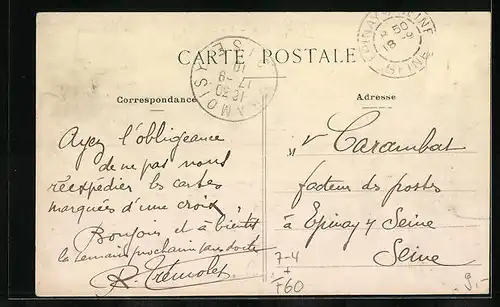 CARTE POSTALE
Correspondance
Ayez l'obligeance
de ne pas nous
réexpédier les cartes
marquées d'une croix
Bonjour et à bientôt
la semaine prochaine sans doute
R. Trémolet
Adresse
M r Carambat
facteur des postes
à Epinay s/ Seine
Seine
7-4
+
F60
9.-
EPINAY S SEINE
8 50
18 -8
(SEINE)
17 -8